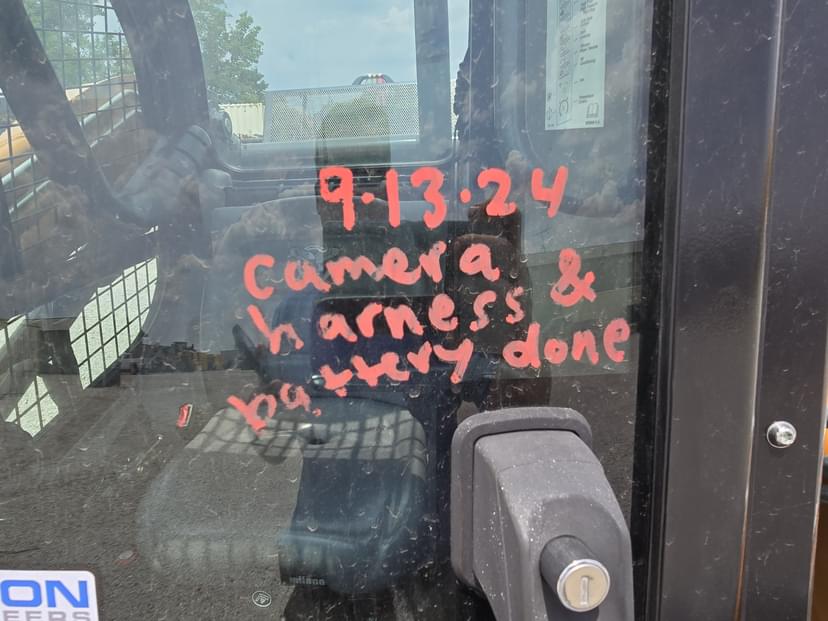 9.13.24
camera &
harness
battery done
ON
EERS